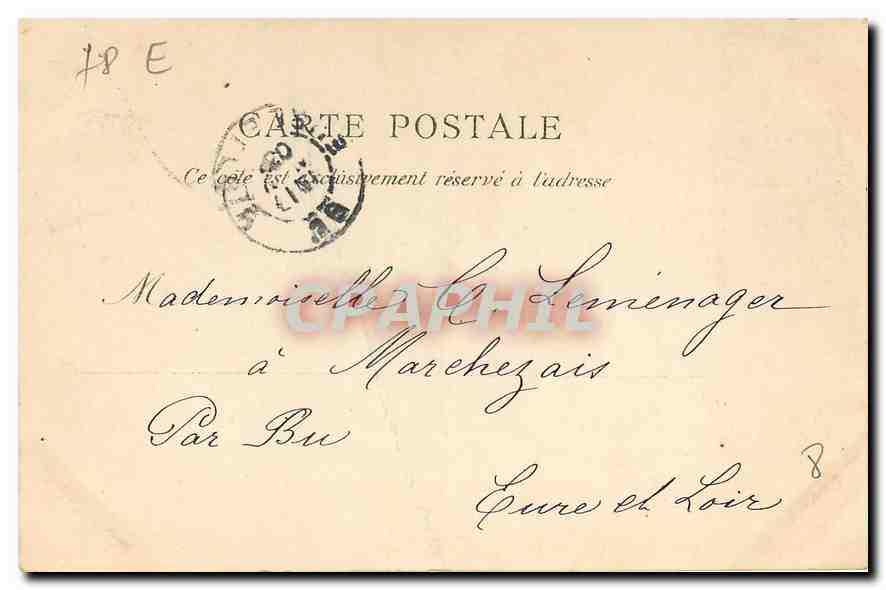 78 E
CARTE POSTALE
Ce côté est exclusivement réservé à l'adresse
Mademoiselle C. Leménager
CPAPHIL
à Marchezais
Par Bu
8
Eure et Loir